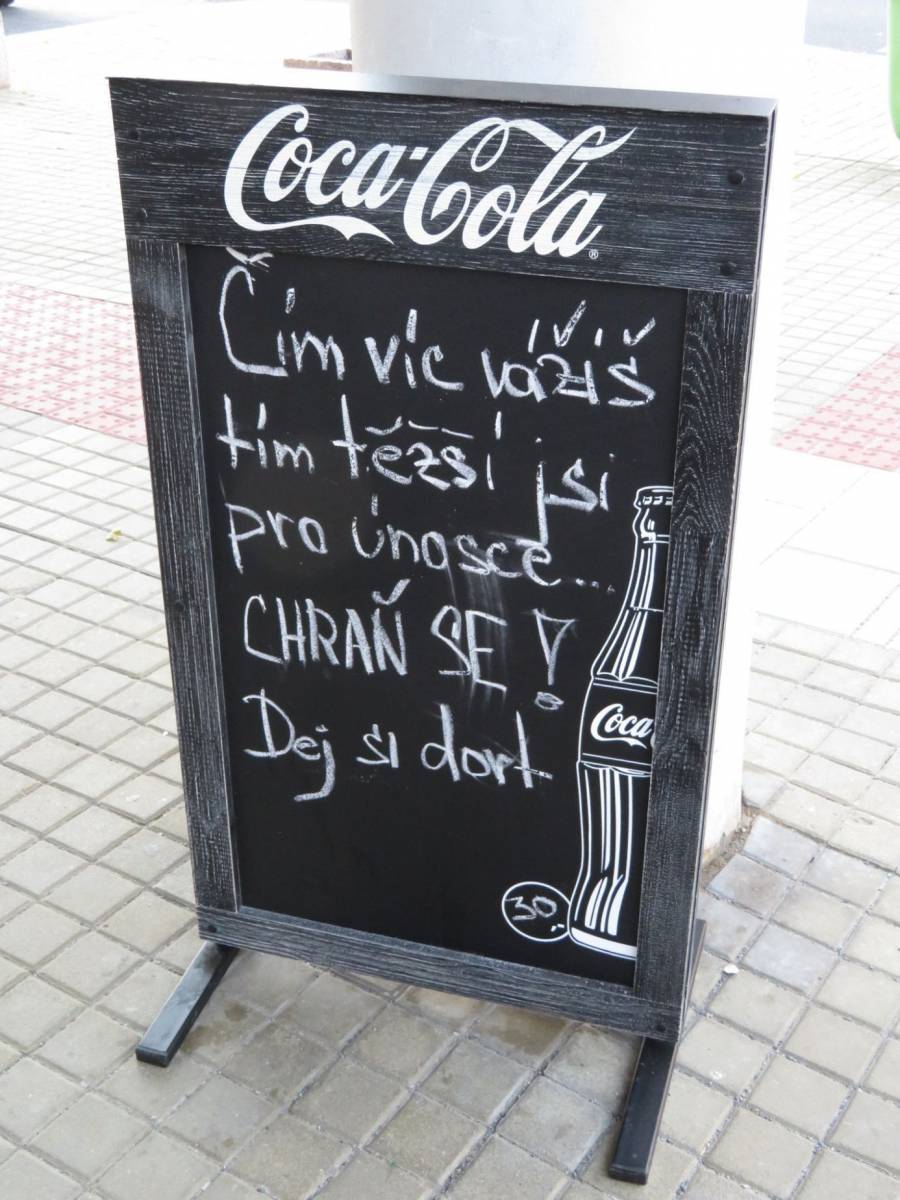 Coca-Cola®
Čím víc vážíš
tím těžší jsi
pro únosce...
CHRAŇ SE !
Dej si dort
Coca
30,-